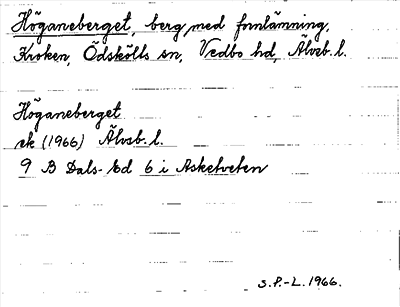 Höganeberget, berg med fornlämning,
Kroken, Ödskölls sn, Vedbo hd, Älvsb. l.
Höganeberget
ek (1966) Älvsb. l.
9 B Dals-Ed 6 i Asketveten
S.P.-L. 1966.